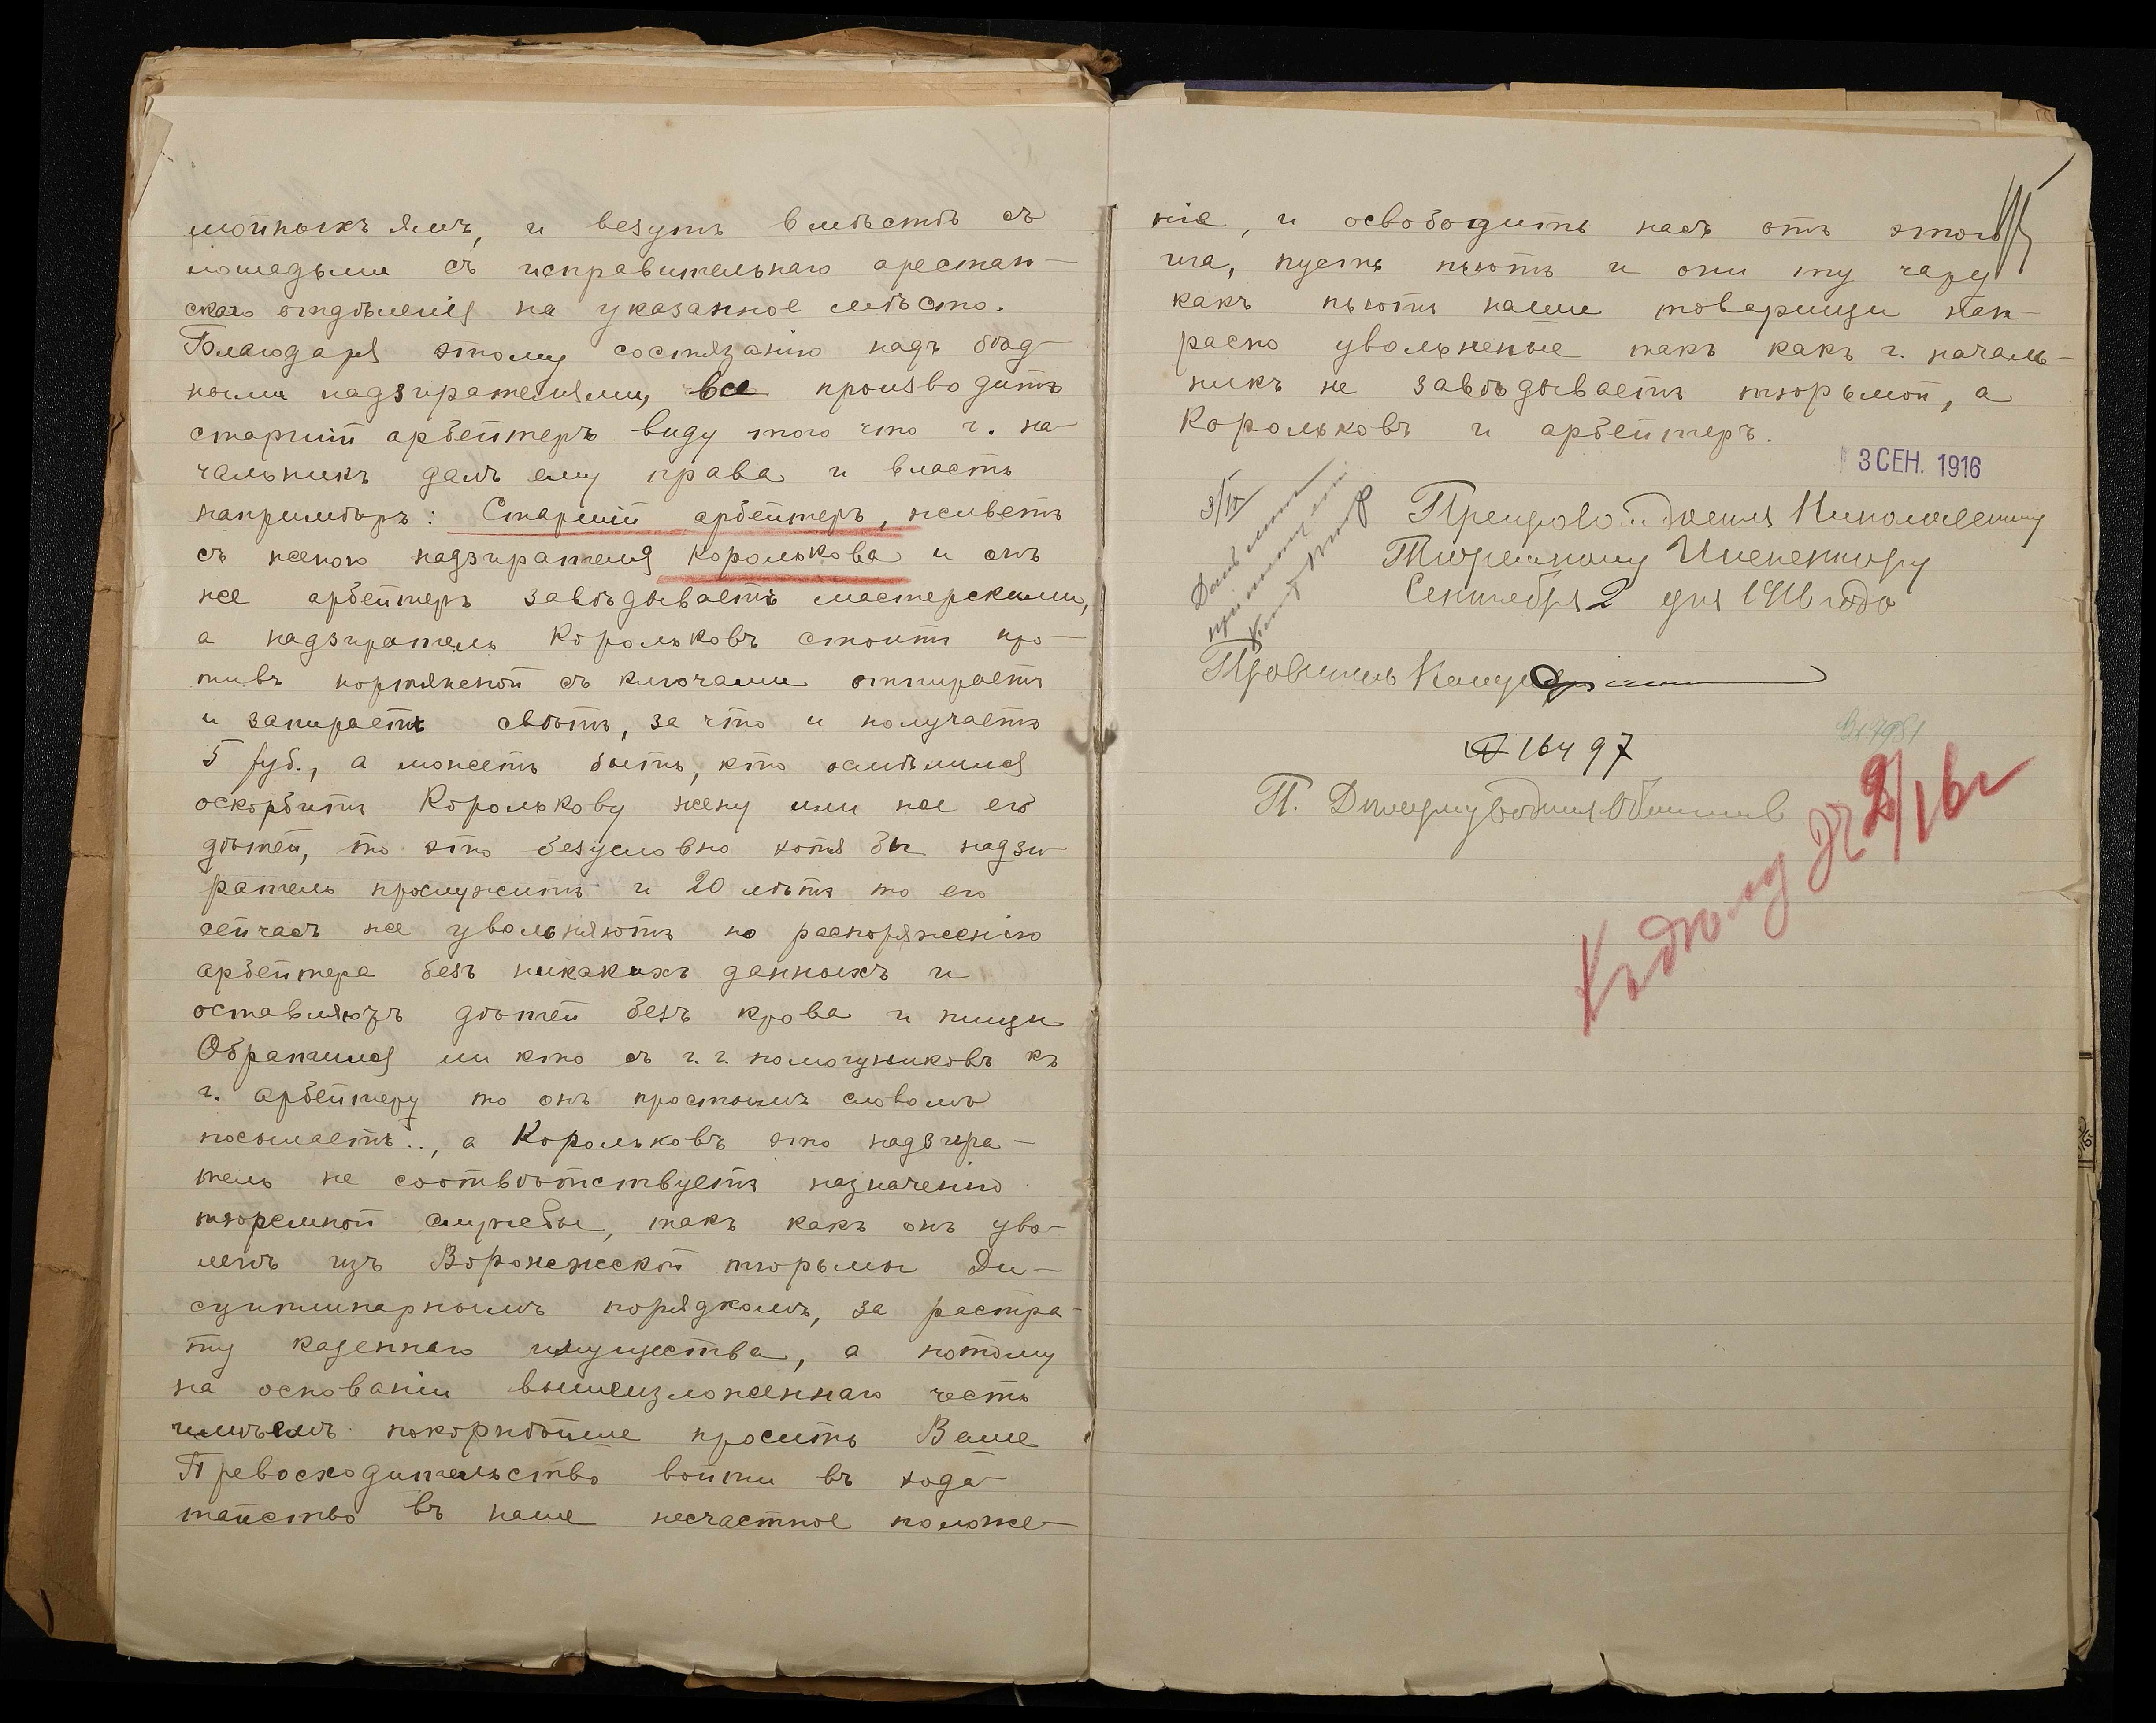 мойныхъ ямъ, и везутъ вмѣстѣ съ
лошадьми съ исправительнаго арестан-
скаго отдѣленія на указанное мѣсто.
Благодаря этому состязанію надъ бѣд-
ными надзирателями, все производитъ
старшій арбейтеръ виду того что г. на-
чальникъ далъ ему права и власть
напримѣръ: Старшій арбейтеръ, живетъ
съ женою надзирателя Королькова и онъ
же арбейтеръ завѣдываетъ мастерскими,
а надзиратель Корольковъ стоитъ про-
тивъ портняжной съ ключами отпираетъ
и запираетъ свѣтъ, за что и получаетъ
5 руб., а можетъ быть, кто осмѣлился
оскорбить Королькову жену или же его
дѣтей, то это безусловно хотя бы надзи-
ратель прослужитъ и 20 лѣтъ то его
сейчасъ же увольняютъ по распоряженію
арбейтера безъ никакихъ данныхъ и
оставляютъ дѣтей безъ крова и пищи
Обратился ли кто съ г.г. помощниковъ къ
г. арбейтеру то онъ простымъ словомъ
посылаетъ.., а Корольковъ это надзира-
тель не соотвѣтствуетъ назначенію
тюремной службы, такъ какъ онъ уво-
ленъ изъ Воронежской тюрьмы Ди-
сциплинарнымъ порядкомъ, за растра-
ту казеннаго имущества, а потому
на основаніи вышеизложеннаго честь
имѣемъ покорнѣйше просить Ваше
Превосходительство войти въ хода-
тайство въ наше несчастное положе-
ніе, и освободить насъ отъ этого
ига, пусть пьютъ и они ту чару
какъ пьютъ наши товарищи нап-
расно уволъненые такъ какъ г. началь-
никъ не завѣдываетъ тюрьмой, а
Корольковъ и арбейтеръ.
3 СЕН. 1916
Препровождается Николаевскому
Тюремному Инспектору
Сентября 2 дня 1916 года
Правитель Канцеляріи
№ 16497
П. Дѣлопроизводителя
Къ дѣлу № 2/16 г